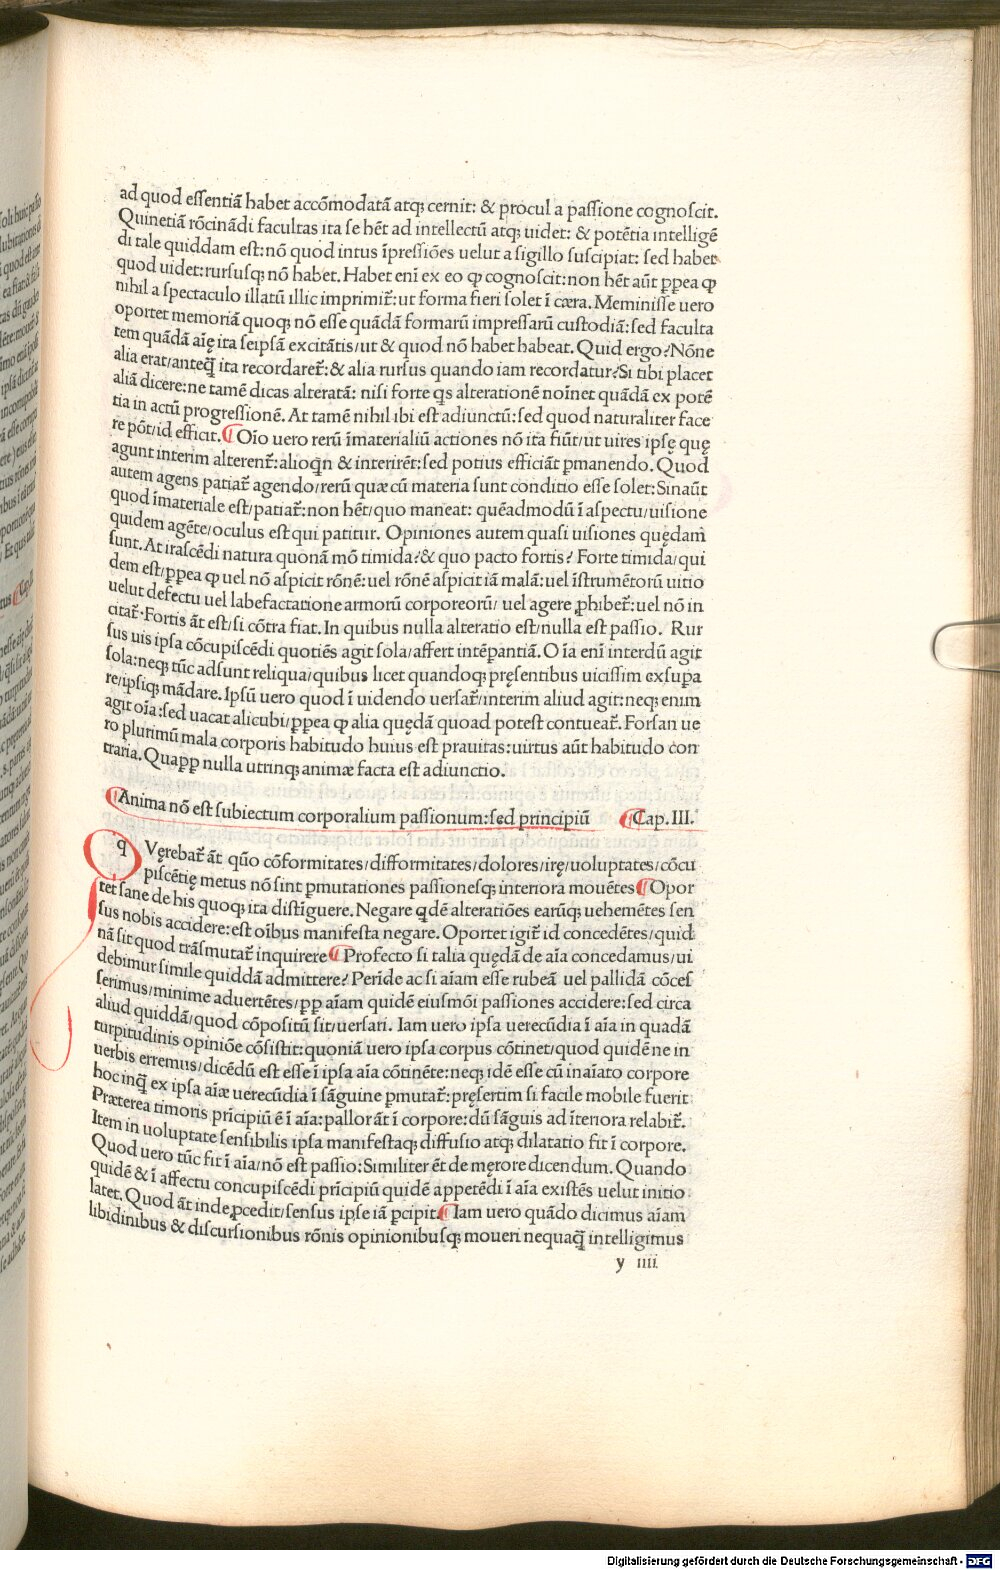 ad quod essentiā habet accōmodatā atq; cernit: & procul a passione cognoscit.
Quinetiā rōcinādi facultas ita se hēt ad intellectū atq; uidet: & potētia intelligē
di tale quiddam est: nō quod intus īpressiōes uelut a sigillo suscipiat: sed habet
quod uidet: rursusq; nō habet. Habet enī ex eo ꝙ cognoscit: non hēt aūt ꝓpea ꝙ
nihil a spectaculo illatū illic imprimit̄: ut forma fieri solet ī cæra. Meminisse uero
oportet memoriā quoq; nō esse quādā formarū impressarū custodiā: sed faculta
tem quādā aīę ita seipsā excitātis/ut & quod nō habet habeat. Quid ergo? Nōne
alia erat/anteq̄ ita recordaret̄: & alia rursus quando iam recordatur? Si tibi placet
aliā dicere: ne tamē dicas alteratā: nisi forte qs alterationē noīnet quādā ex potē
tia in actū progressionē. At tamē nihil ibi est adiunctū: sed quod naturaliter face
re pōt/id efficit. ¶ Oīo uero rerū īmaterialiū actiones nō ita fiūt/ut uires ipsę quę
agunt interim alterent̄: alioq̄n & interirēt: sed potius efficiāt ꝑmanendo. Quod
autem agens patiat̄ agendo/rerū quæ cū materia sunt conditio esse solet: Sinaūt
quod īmateriale est/patiat̄: non hēt/quo maneat: quēadmodū ī aspectu/uisione
quidem agēte/oculus est qui patitur. Opiniones autem quasi uisiones quędam
sunt. At irascēdi natura quonā mō timida? & quo pacto fortis? Forte timida/qui
dem est/ꝓpea ꝙ uel nō aspicit rōnē: uel rōnē aspicit iā malā: uel īstrumētorū uitio
uelut defectu uel labefactatione armorū corporeorū/ uel agere ꝓhibet̄: uel nō in
citat̄. Fortis āt est/si cōtra fiat. In quibus nulla alteratio est/nulla est passio. Rur
sus uis ipsa cōcupiscēdi quotiēs agit sola/affert intēperantiā. O īa enī interdū agit
sola: neq; tūc adsunt reliqua/quibus licet quandoq; pręsentibus uicissim exsuꝑa
re/ipsiq; mādare. Ipsū uero quod ī uidendo uersat̄/interim aliud agit: neq; enim
agit oīa: sed uacat alicubi/ꝓpea ꝙ alia quędā quoad potest contueat̄. Forsan ue
ro plurimū mala corporis habitudo huius est prauitas: uirtus aūt habitudo con
traria. Quapp nulla utrinq; animæ facta est adiunctio.
¶ Anima nō est subiectum corporalium passionum: sed principiū ¶ Cap. III.
q Vęrebat̄ āt quō cōformitates/difformitates/dolores/irę/uoluptates/cōcu
piscētię metus nō sint ꝑmutationes passionesq; interiora mouētes ¶ Opor
tet sane de his quoq; ita distīguere. Negare qdē alteratiōes earūq; uehemētes sen
sus nobis accidere: est oībus manifesta negare. Oportet igit̄ id concedētes/quid
nā sit quod trāsmutat̄ inquirere ¶ Profecto si talia quędā de aīa concedamus/ui
debimur simile quiddā admittere? Perīde ac si aīam esse rubeā uel pallidā cōcef
serimus/minime aduertētes/ꝓp aīam quidē eiusmōi passiones accidere: sed circa
aliud quiddā/quod cōpositū sit/uersari. Iam uero ipsa uerecūdia ī aīa in quadā
turpitudinis opiniōe cōsistit: quoniā uero ipsa corpus cōtinet/quod quidē ne in
uerbis erremus/dicēdū est esse ī ipsa aīa cōtinēte: neq; idē esse cū inaīato corpore
hoc inq̄ ex ipsa aīæ uerecūdia ī sāguine ꝑmutat̄: pręsertim si facile mobile fuerit
Præterea timoris prīcipiū ē ī aīa: pallor āt ī corpore: dū sāguis ad īteriora relabit̄.
Item in uoluptate sensibilis ipsa manifestaq; diffusio atq; dilatatio fit ī corpore.
Quod uero tūc fit ī aīa/nō est passio: Similiter ēt de męrore dicendum. Quando
quidē & ī affectu concupiscēdi prīcipiū quidē appetēdi ī aīa existēs uelut initio
latet. Quod āt inde ꝓcedit/sensus ipse iā ꝑcipit. ¶ Iam uero quādo dicimus aīam
libidinibus & discursionibus rōnis opinionibusq; moueri nequaq̄ intelligimus
y iiii
Digitalisierung gefördert durch die Deutsche Forschungsgemeinschaft - DFG